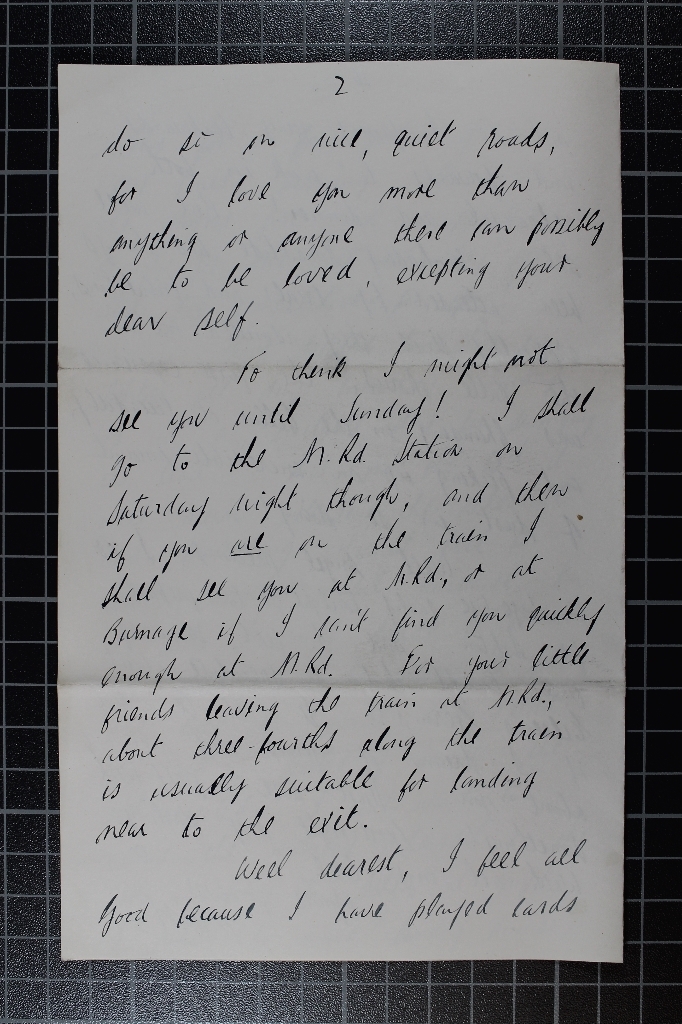 2
do so on nice, quiet roads,
for I love you more than
anything or anyone there can possibly
be to be loved, excepting your
dear self.
To think I might not
see you until Sunday! I shall
go to the M. Rd. Station on
Saturday night though, and then
if you are on the train I
shall see you at M.Rd., or at
Burnage if I can't find you quickly
enough at M.Rd. For your little
friends leaving the train at M.Rd.,
about three-fourths along the train
is usually suitable for landing
near to the exit.
Well dearest, I feel all
Good because I have played cards